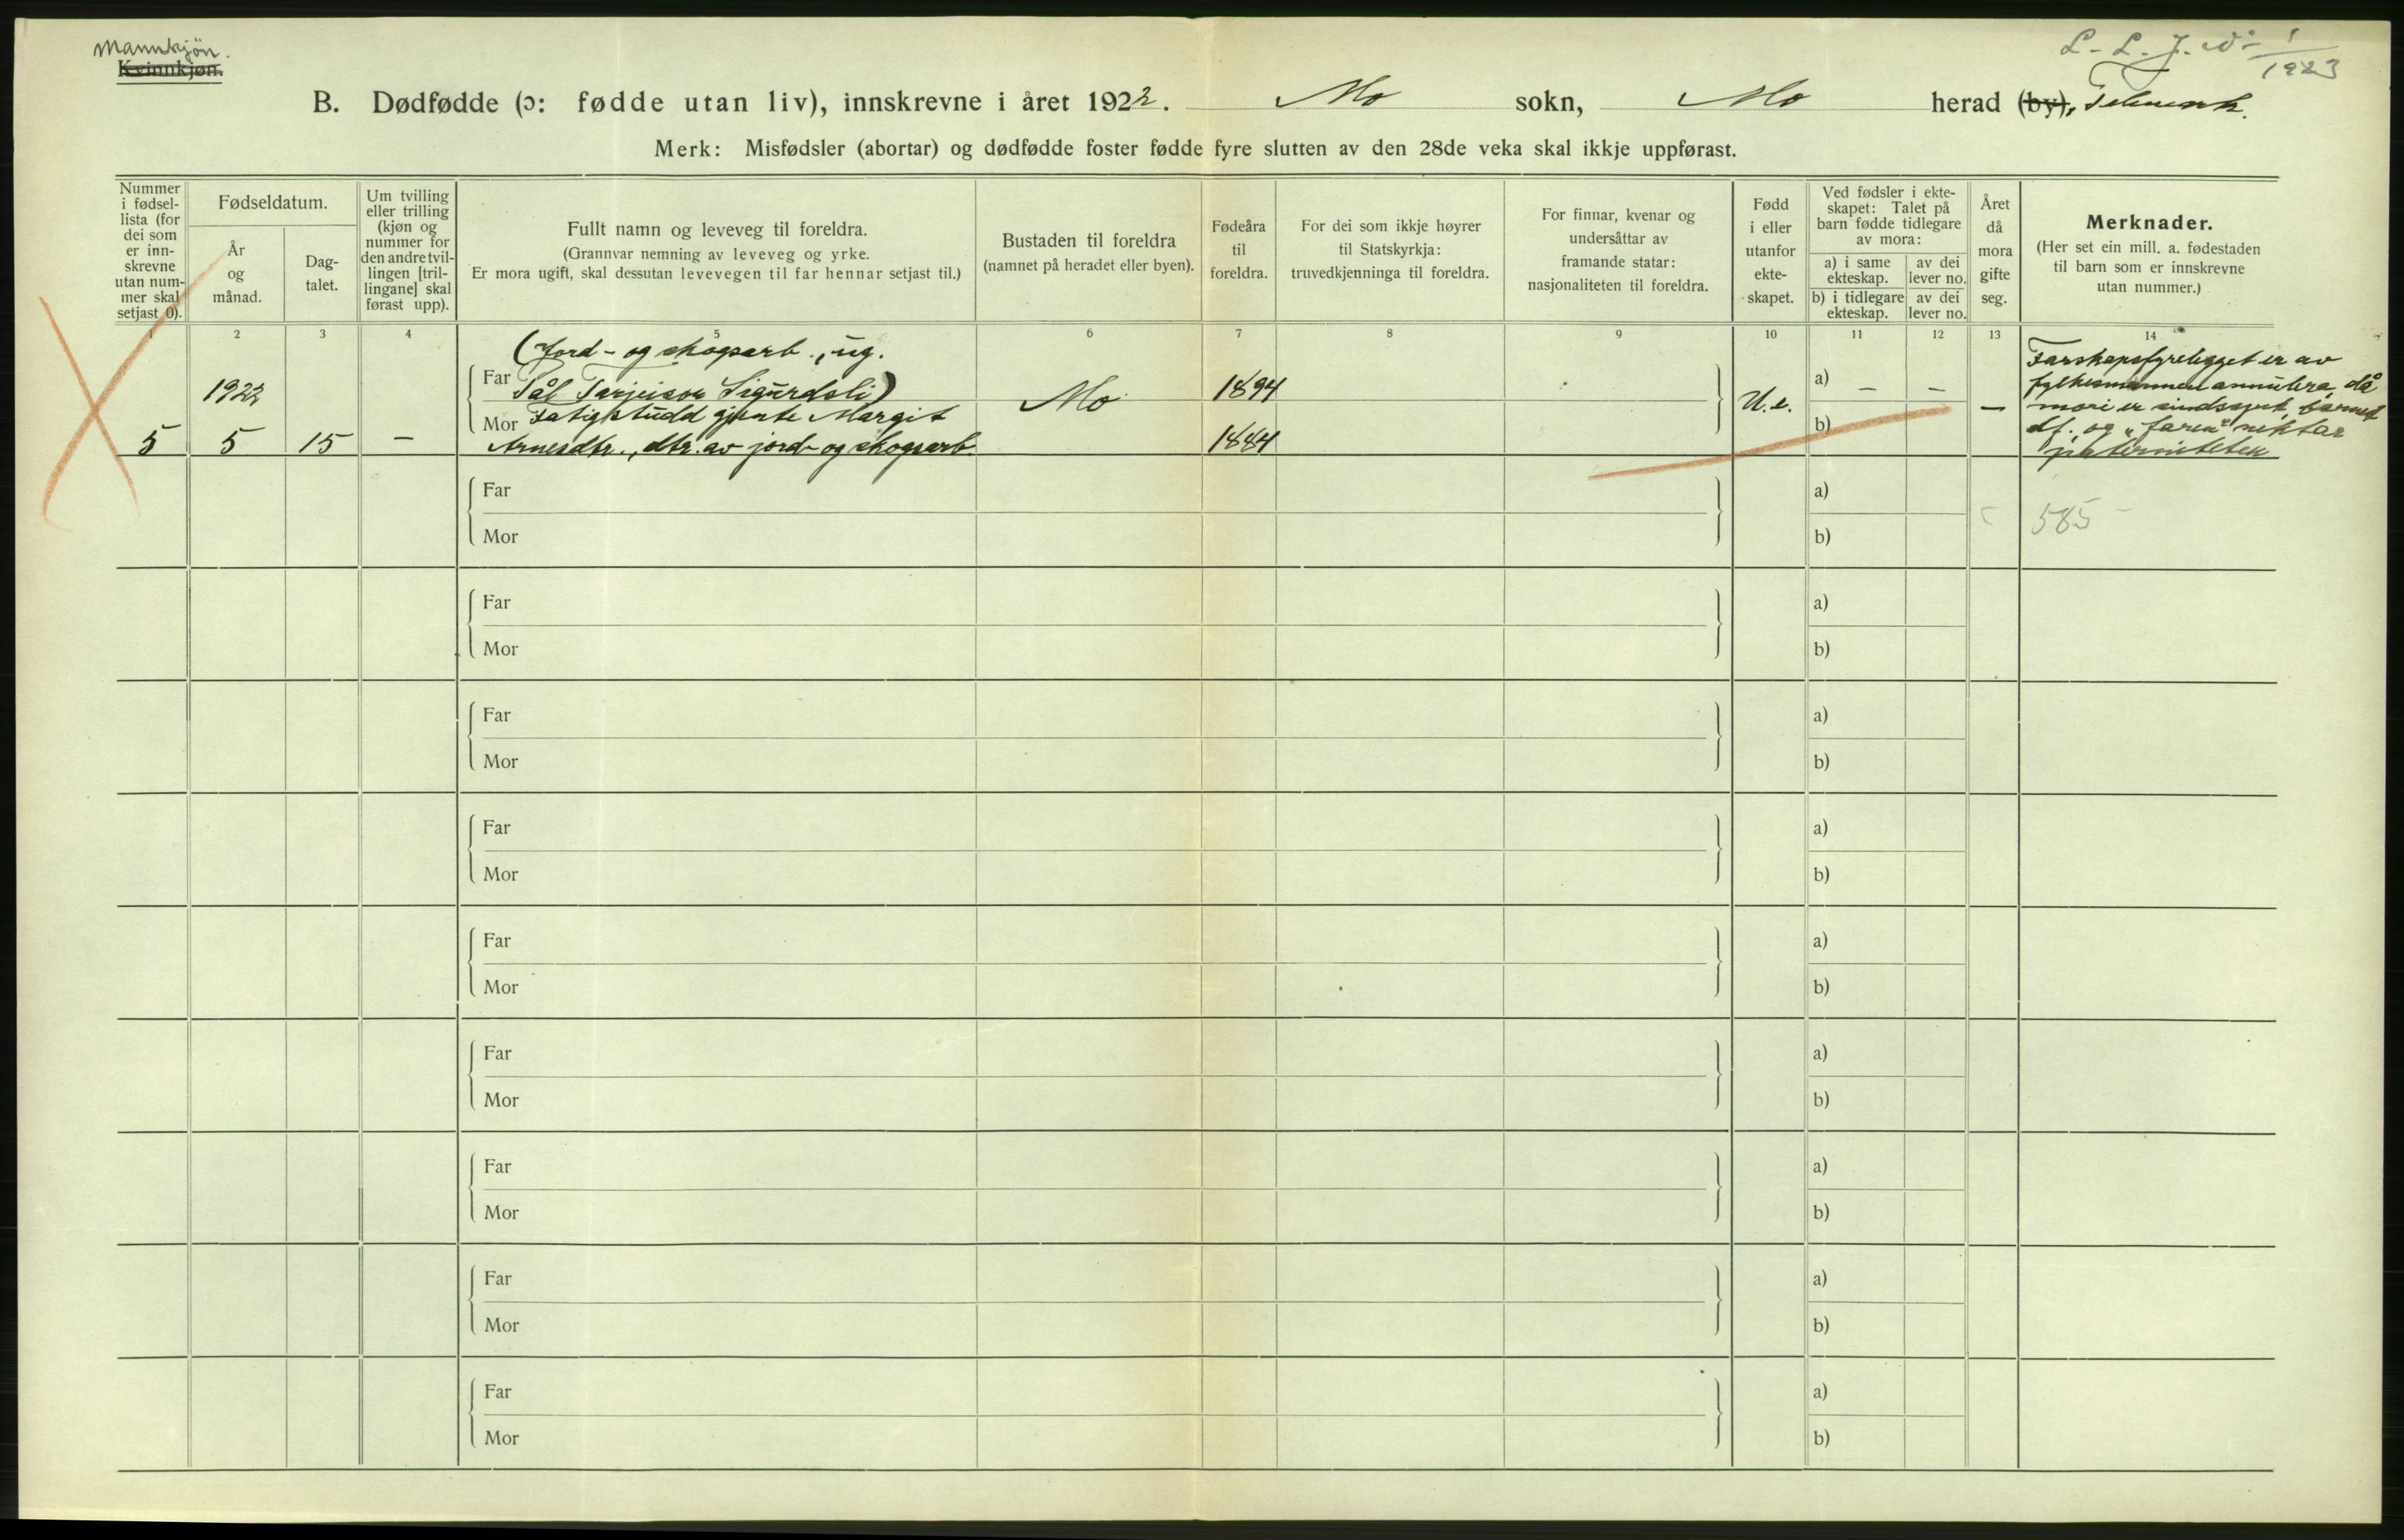 Mannkjøn.
Kvinnkjøn.
L. - L. J. No 1
1923
B. Dødfødde (ɔ: fødde utan liv), innskrevne i året 1922. Mo sokn, Mo herad (by), Telemark.
Merk: Misfødsler (abortar) og dødfødde foster fødde fyre slutten av den 28de veka skal ikkje uppførast.
Nummer
i fødsel-
lista (for
dei som
er inn-
skrevne
utan num-
mer skal
setjast 0).
Fødseldatum.
År
og
månad.
Dag-
talet.
Um tvilling
eller trilling
(kjøn og
nummer for
den andre tvil-
lingen [tril-
lingane] skal
førast upp).
Fullt namn og leveveg til foreldra.
(Grannvar nemning av leveveg og yrke.
Er mora ugift, skal dessutan levevegen til far hennar setjast til.)
Bustaden til foreldra
(namnet på heradet eller byen).
Fødeåra
til
foreldra.
For dei som ikkje høyrer
til Statskyrkja:
truvedkjenninga til foreldra.
For finnar, kvenar og
undersåttar av
framande statar:
nasjonaliteten til foreldra.
Fødd
i eller
utanfor
ekte-
skapet.
Ved fødsler i ekte-
skapet: Talet på
barn fødde tidlegare
av mora:
a) i same
ekteskap.
av dei
lever no.
b) i tidlegare
ekteskap.
av dei
lever no.
Året
då
mora
gifte
seg.
Merknader.
(Her set ein mill. a. fødestaden
til barn som er innskrevne
utan nummer.)
1 2 3 4 5 6 7 8 9 10 11 12 13 14
5
1922
5
15
–
(Jord- og skogsarb., ug.
Far Pål Tarjeison Sigurdsli)
Mor Fatigstudd gjente Margit
Arnesdtr., dtr. av jord- og skogsarb.
Mo
1894
1884
U.e.
a) – –
b)
–
Farskapsfyrelegget er av
fylkesmannen annullera, då
mori er sindssjuk, barnet
df. og "faren" nektar
paterniteten
Far
Mor
a)
b)
585
Far
Mor
a)
b)
Far
Mor
a)
b)
Far
Mor
a)
b)
Far
Mor
a)
b)
Far
Mor
a)
b)
Far
Mor
a)
b)
Far
Mor
a)
b)
Far
Mor
a)
b)